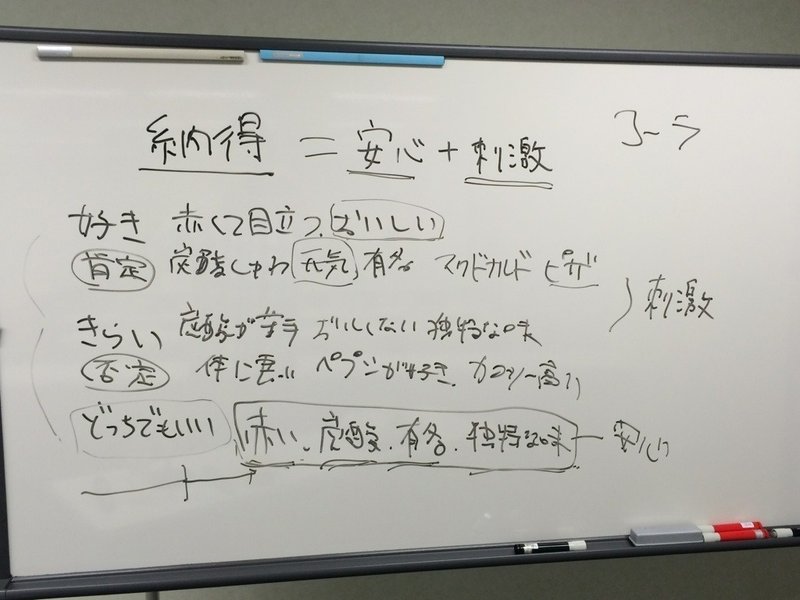 納得 = 安心 + 刺激
コーラ
好き 赤くて目立つ、おいしい
肯定 炭酸しゅわ 元気 有名 マクドナルド ピザ
刺激
きらい 炭酸が苦手 おいしくない 独特な味
否定 体に悪い ペプシが好き、カロリー高い
どっちでもいい 赤い、炭酸、有名、独特な味 ー 安心